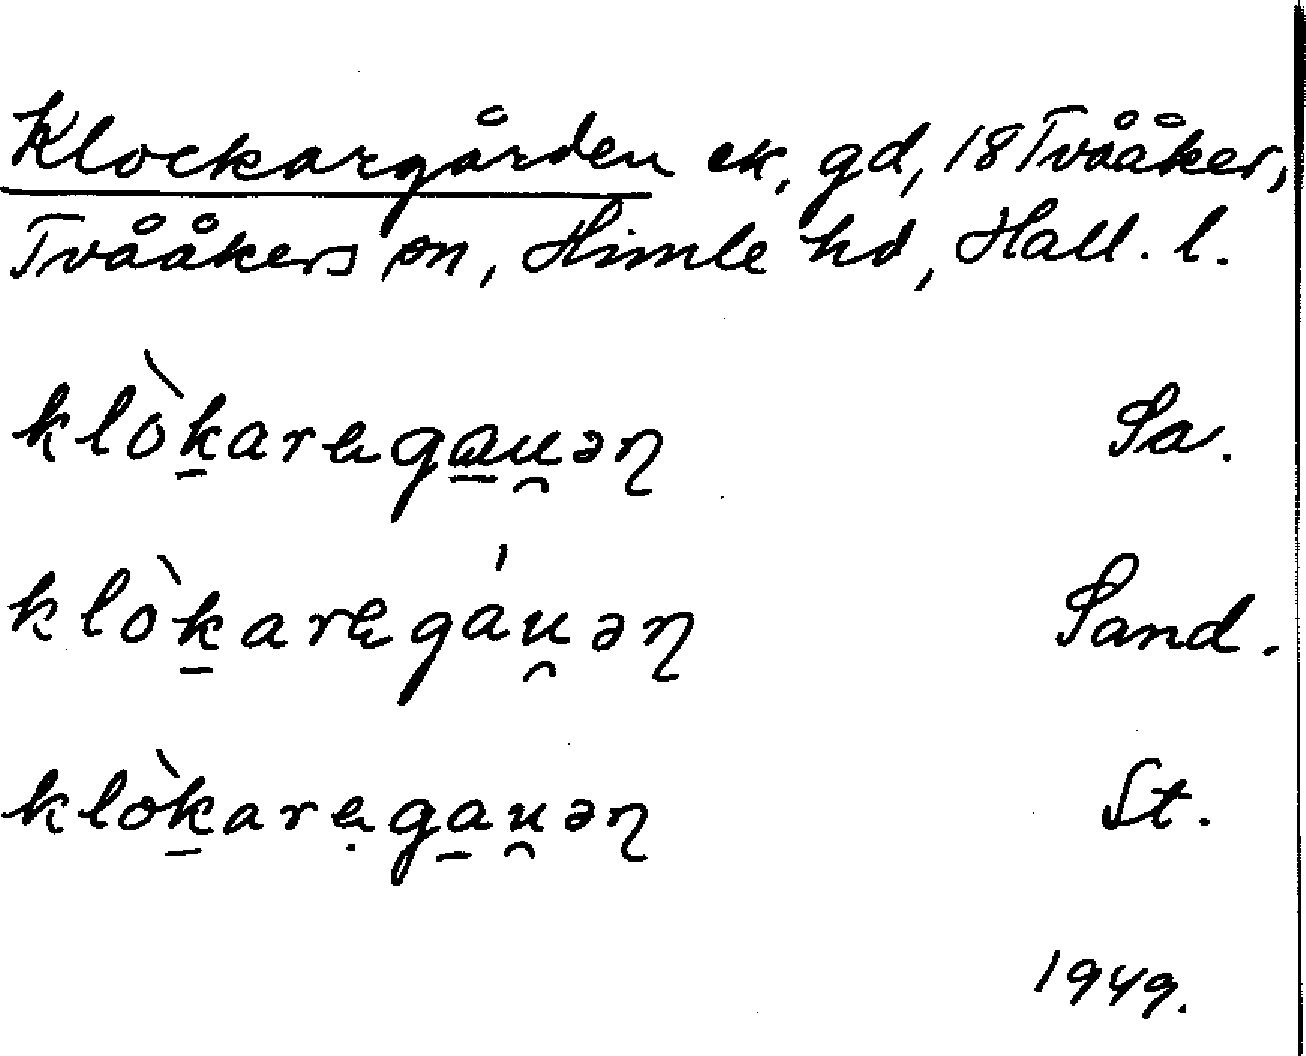 Klockargården ek. gd, 18 Tvååker,
Tvååkers sn, Himle hd, Hall. l.
klòk̠arega̠u̯ən Sa.
klòk̠aregáu̯ən Sand.
klòk̠arẹga̠u̯ən St.
1949.